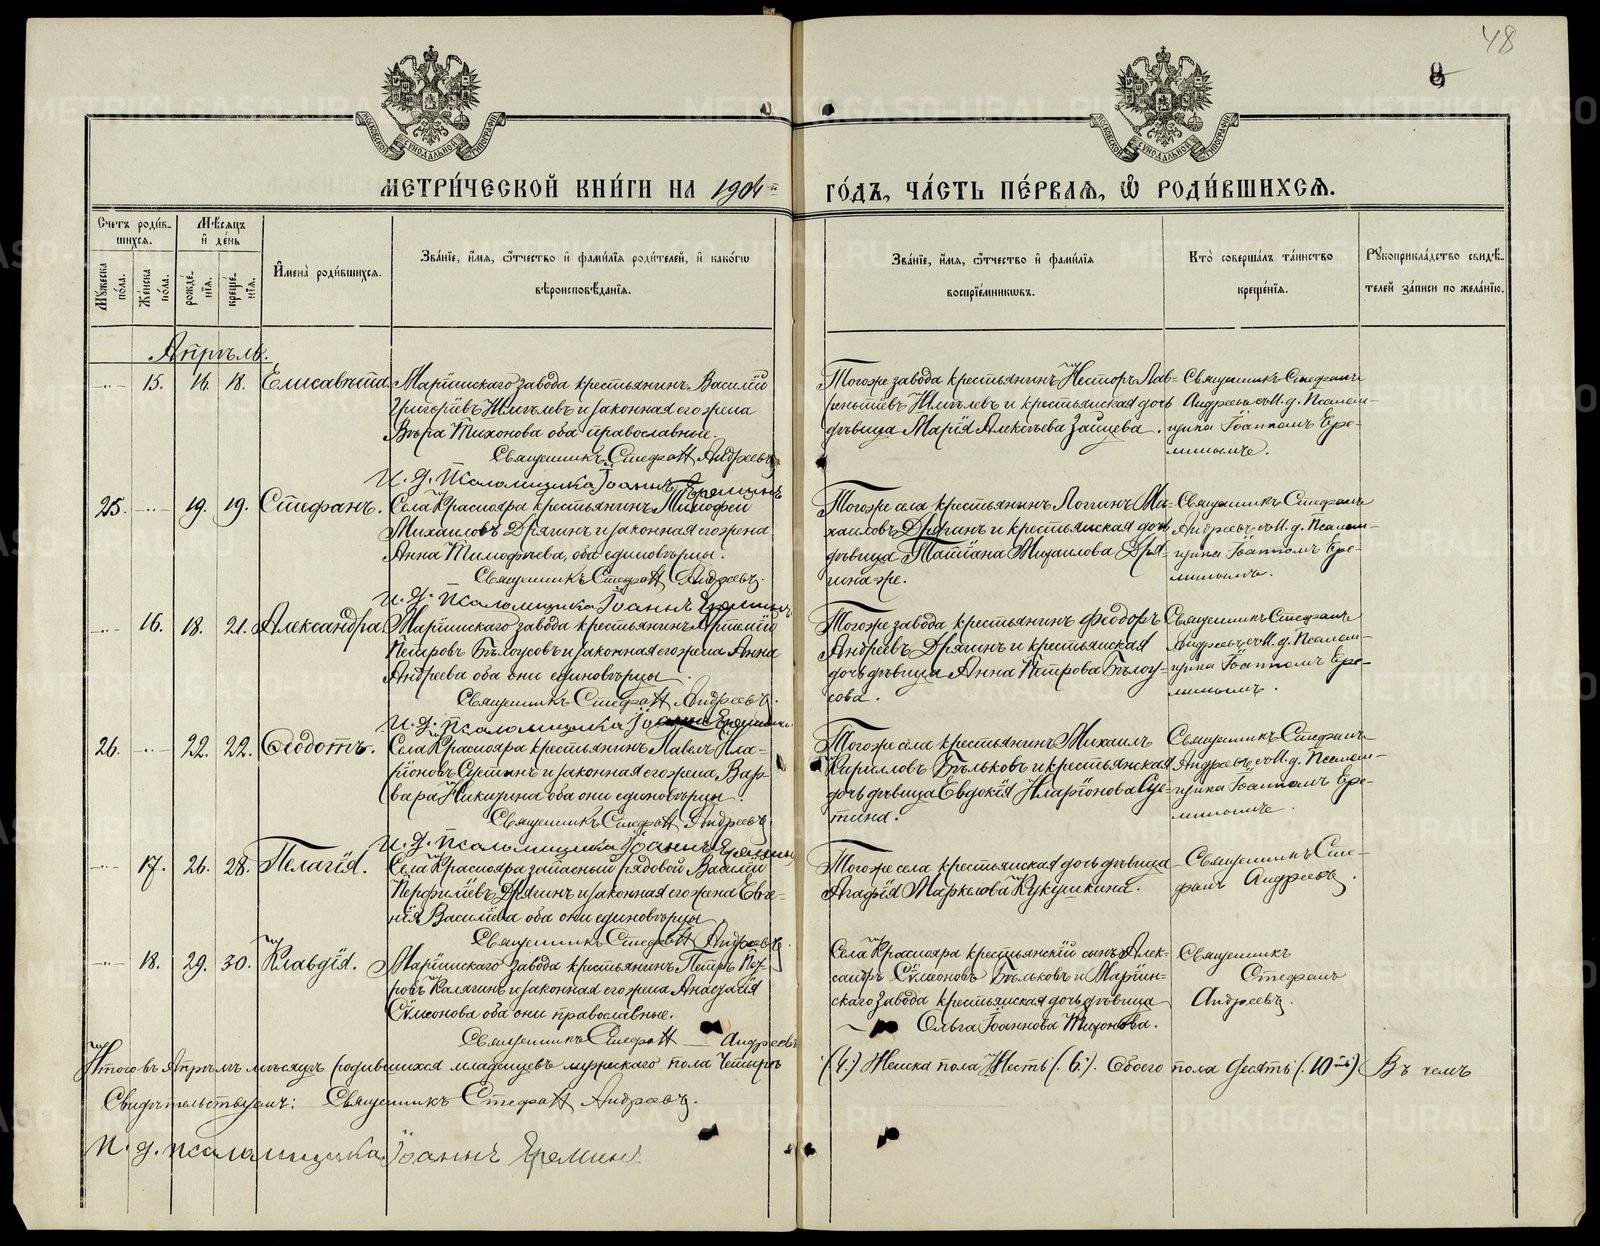 48
8
МЕТРИ́ЧЕСКОЙ КНИ́ГИ НА 1904й ГО́ДЪ, ЧА́СТЬ ПЕ́РВАѦ, Ѽ РОДИ́ВШИХСѦ.
Счетъ роди́вшихсѧ.
Мѣ́сѧцъ и҆ де́нь
Мꙋ́жеска по́ла.
Же́нска по́ла.
рожде́нїѧ.
креще́нїѧ.
И҆мена̀ роди́вшихсѧ.
Зва́нїе, и҆́мѧ, ѻ҆́тчество и҆ фами́лїѧ роди́телей, и҆ како́гѡ
вѣроисповѣ́данїѧ.
Зва́нїе, и҆́мѧ, ѻ҆́тчество и҆ фами́лїѧ
воспрїе́мникѡвъ.
Кто̀ соверша́лъ та́инство
креще́нїѧ.
Рꙋкоприкла́дство свидѣ́-
телей за́писи по жела́нїю.
Апрѣль.
15. 16. 18. Елисавѣта. Марiинскаго завода крестьянинъ Василiй
Григорiевъ и законная его жена
Вѣра Тихонова оба православные.
Священникъ Стефанъ Андреевъ
И. д. псаломщика Iоаннъ Ереминъ
Тогоже завода крестьянинъ Несторъ Лав-
рентiевъ и крестьянская дочь
дѣвица Марiя Алексѣева Зайцева.
Священникъ Стефанъ
Андреевъ съ И. д. Псалом-
щика Iоанномъ Ере-
25. 19. 19. Стефанъ. Села Краснояра крестьянинъ Тимофей
Михаиловъ Дрягинъ и законная его жена
Анна Тимофѣева, оба единовѣрцы.
Священникъ Стефанъ Андреевъ.
И. д. псаломщика Iоаннъ Ереминъ
Тогоже села крестьянинъ Логгинъ Ми-
хаиловъ Дрягинъ и крестьянская дочь
дѣвица Татiана Михаилова Дря-
гина же.
Священникъ Стефанъ
Андреевъ съ И. д. Псалом-
щика Iоанномъ Ере-
минымъ.
16. 18. 21. Александра. Марiинскаго завода крестьянинъ Артемiй
Петровъ Бѣлоусовъ и законная его жена Анна
Андреева оба они единовѣрцы.
Священникъ Стефанъ Андреевъ.
И. д. псаломщика Iоаннъ Ереминъ
Тогоже завода крестьянинъ Феодоръ
Андреевъ Дрягинъ и крестьянская
дочь дѣвица Анна Петрова Бѣлоу-
сова.
Священникъ Стефанъ
Андреевъ съ И. д. Псалом-
щика Iоанномъ Ере-
минымъ.
26. 22. 22. Ѳеодотъ. Села Краснояра крестьянинъ Павелъ Ила-
рiоновъ Сутинъ и законная его жена Вар-
вара Никитина оба они единовѣрцы.
Священникъ Стефанъ Андреевъ
И. д. псаломщика Iоаннъ Ереминъ
Тогоже села крестьянинъ Михаилъ
Кирилловъ Бѣльковъ и крестьянская
дочь дѣвица Евдокiя Иларiонова Су-
тина.
Священникъ Стефанъ
Андреевъ съ И. д. Псалом-
щика Iоанномъ Ере-
17. 26. 28. Пелагiя. Села Краснояра запасный рядовой Василiй
Перфилiевъ Дрягинъ и законная его жена Евге-
нiя Василiева оба они единовѣрцы
Священникъ Стефанъ Андреевъ.
Тогоже села крестьянская дочь дѣвица
Агафiя Маркелова Кукушкина.
Священникъ Сте-
фанъ Андреевъ.
18. 29. 30. Клавдiя. Марiинскаго завода крестьянинъ Петръ
Калягинъ и законная его жена Анастасiя
Сѵмеонова оба они православные.
Священникъ Стефанъ Андреевъ
Села Краснояра крестьянскiй сынъ Алек-
сандръ Сѵмеоновъ Бѣльковъ и Марiин-
скаго завода крестьянская дочь дѣвица
Ольга Iоаннова Тихонова.
Священникъ
Стефанъ
Андреевъ.
Итого въ Апрѣлѣ мѣсяцѣ родившихся младенцевъ мужскаго пола Четыре (4.) Женска пола Шесть (6.). Обоего пола Десять (10ть) Въ чемъ
Свидѣтельствуемъ: Священникъ Стефанъ Андреевъ.
И. д. псаломщика Iоаннъ Ереминъ